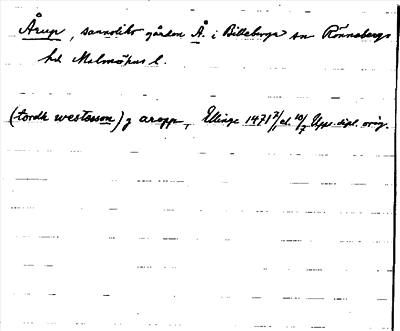 Årup, sannolikt gården Å. i Billeberga sn Rönnebergs
hd Malmöhus l.
(tordh westosson) j aropp, Ellinge 1471 7/1 el. 10/7 Upps. dipl. orig.